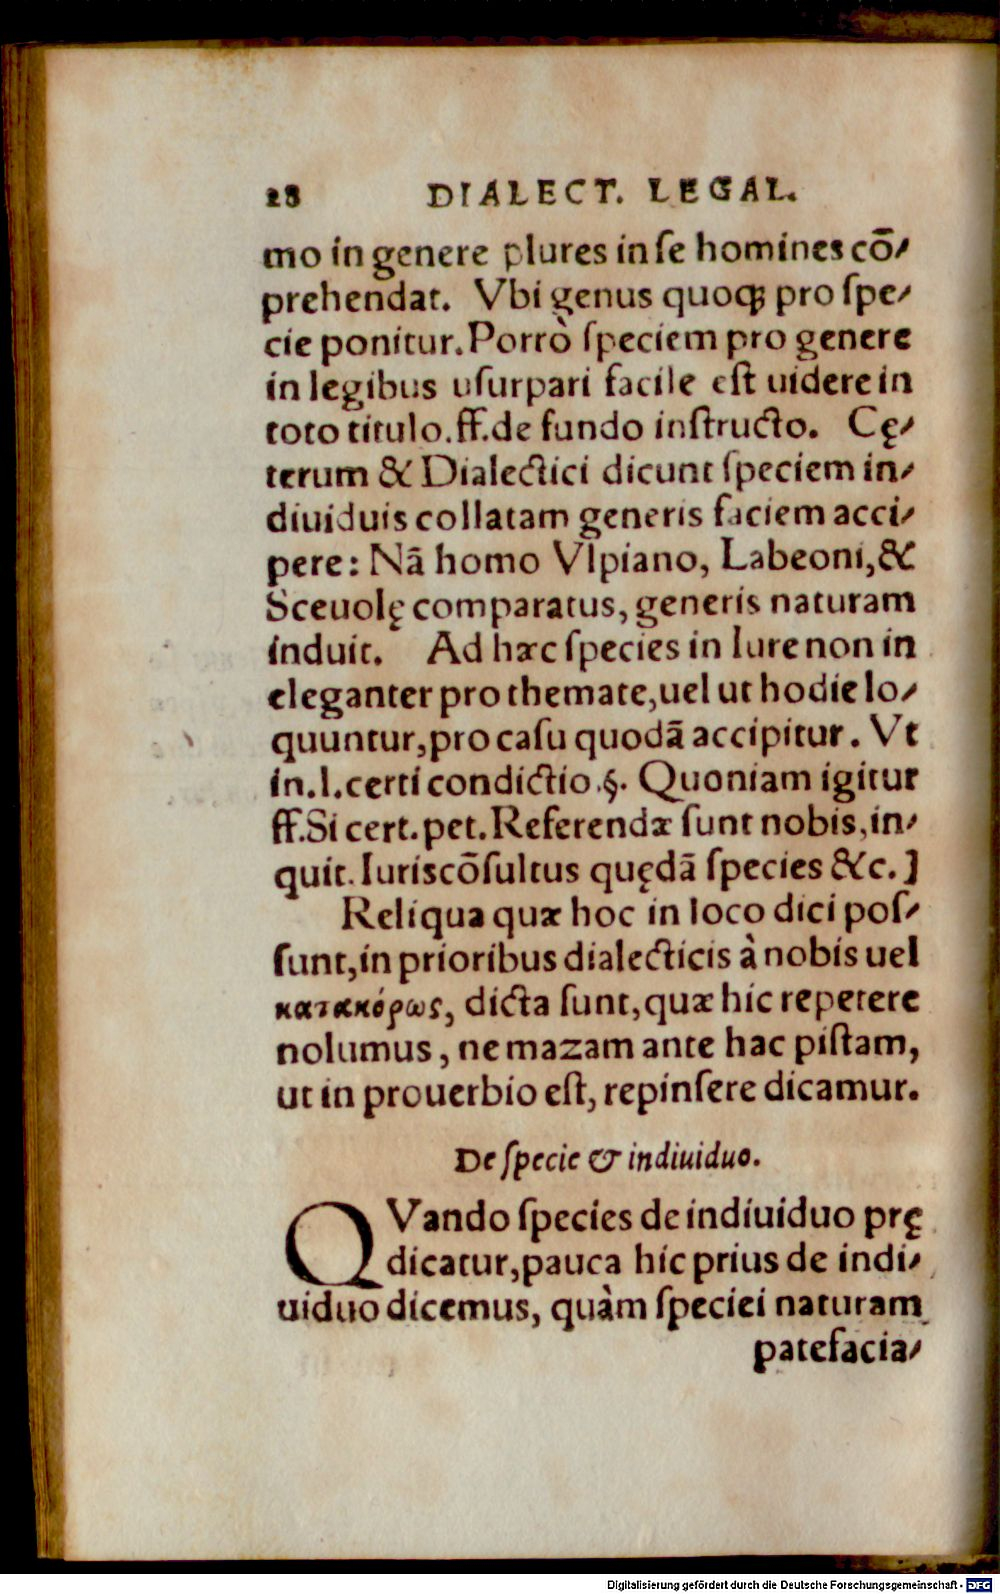 28 DIALECT. LEGAL.
mo in genere plures in ſe homines cō⸗
prehendat. Vbi genus quoqꝫ pro ſpe⸗
cie ponitur. Porrò ſpeciem pro genere
in legibus uſurpari facile eſt uidere in
toto titulo. ff. de fundo inſtructo. Cę⸗
terum & Dialectici dicunt ſpeciem in⸗
diuiduis collatam generis faciem acci⸗
pere: Nā homo Vlpiano, Labeoni, &
Sceuolę comparatus, generis naturam
induit. Ad hæc ſpecies in Iure non in
eleganter pro themate, uel ut hodie lo⸗
quuntur, pro caſu quodā accipitur. Vt
in. l. certi condictio. §. Quoniam igitur
ff. Si cert. pet. Referendæ ſunt nobis, in⸗
quit. Iuriscōſultus quędā ſpecies &c. ]
Reliqua quæ hoc in loco dici poſ⸗
ſunt, in prioribus dialecticis à nobis uel
κατακόρως, dicta ſunt, quæ hic repetere
nolumus, ne mazam ante hac piſtam,
ut in prouerbio eſt, repinſere dicamur.
De ſpecie & indiuiduo.
QVando ſpecies de indiuiduo prę
dicatur, pauca hic prius de indi⸗
uiduo dicemus, quàm ſpeciei naturam
patefacia⸗
Digitalisierung gefördert durch die Deutsche Forschungsgemeinschaft - DFG